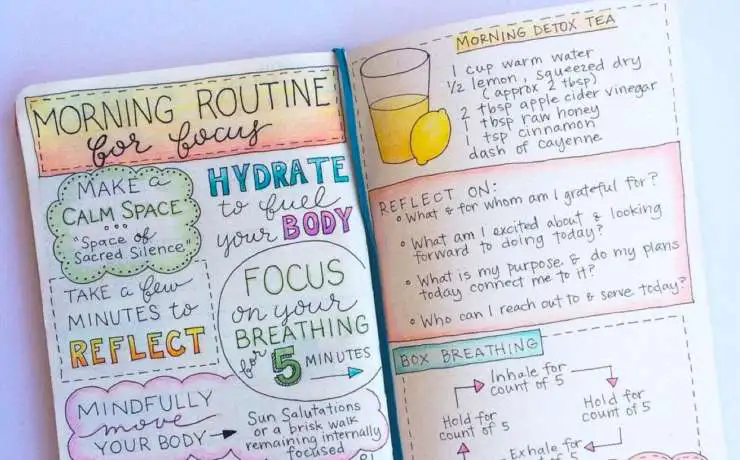 MORNING ROUTINE
for focus
MAKE A
CALM SPACE
"Space of
Sacred Silence"
HYDRATE
to fuel
your BODY
TAKE A few
MINUTES to
REFLECT
FOCUS
on your
BREATHING
for 5 MINUTES
MINDFULLY
move
YOUR BODY
Sun Salutations
or a brisk walk
remaining internally
focused
MORNING DETOX TEA
1 cup warm water
1/2 lemon, squeezed dry
(approx 2 tbsp)
2 tbsp apple cider vinegar
1 tbsp raw honey
1 tsp cinnamon
dash of cayenne
REFLECT ON:
• What & for whom am I grateful for?
• What am I excited about & looking
forward to doing today?
• What is my purpose, & do my plans
today connect me to it?
• Who can I reach out to & serve today?
BOX BREATHING
Inhale for
count of 5
Hold for
count of 5
Exhale for
count of 5
Hold for
count of 5